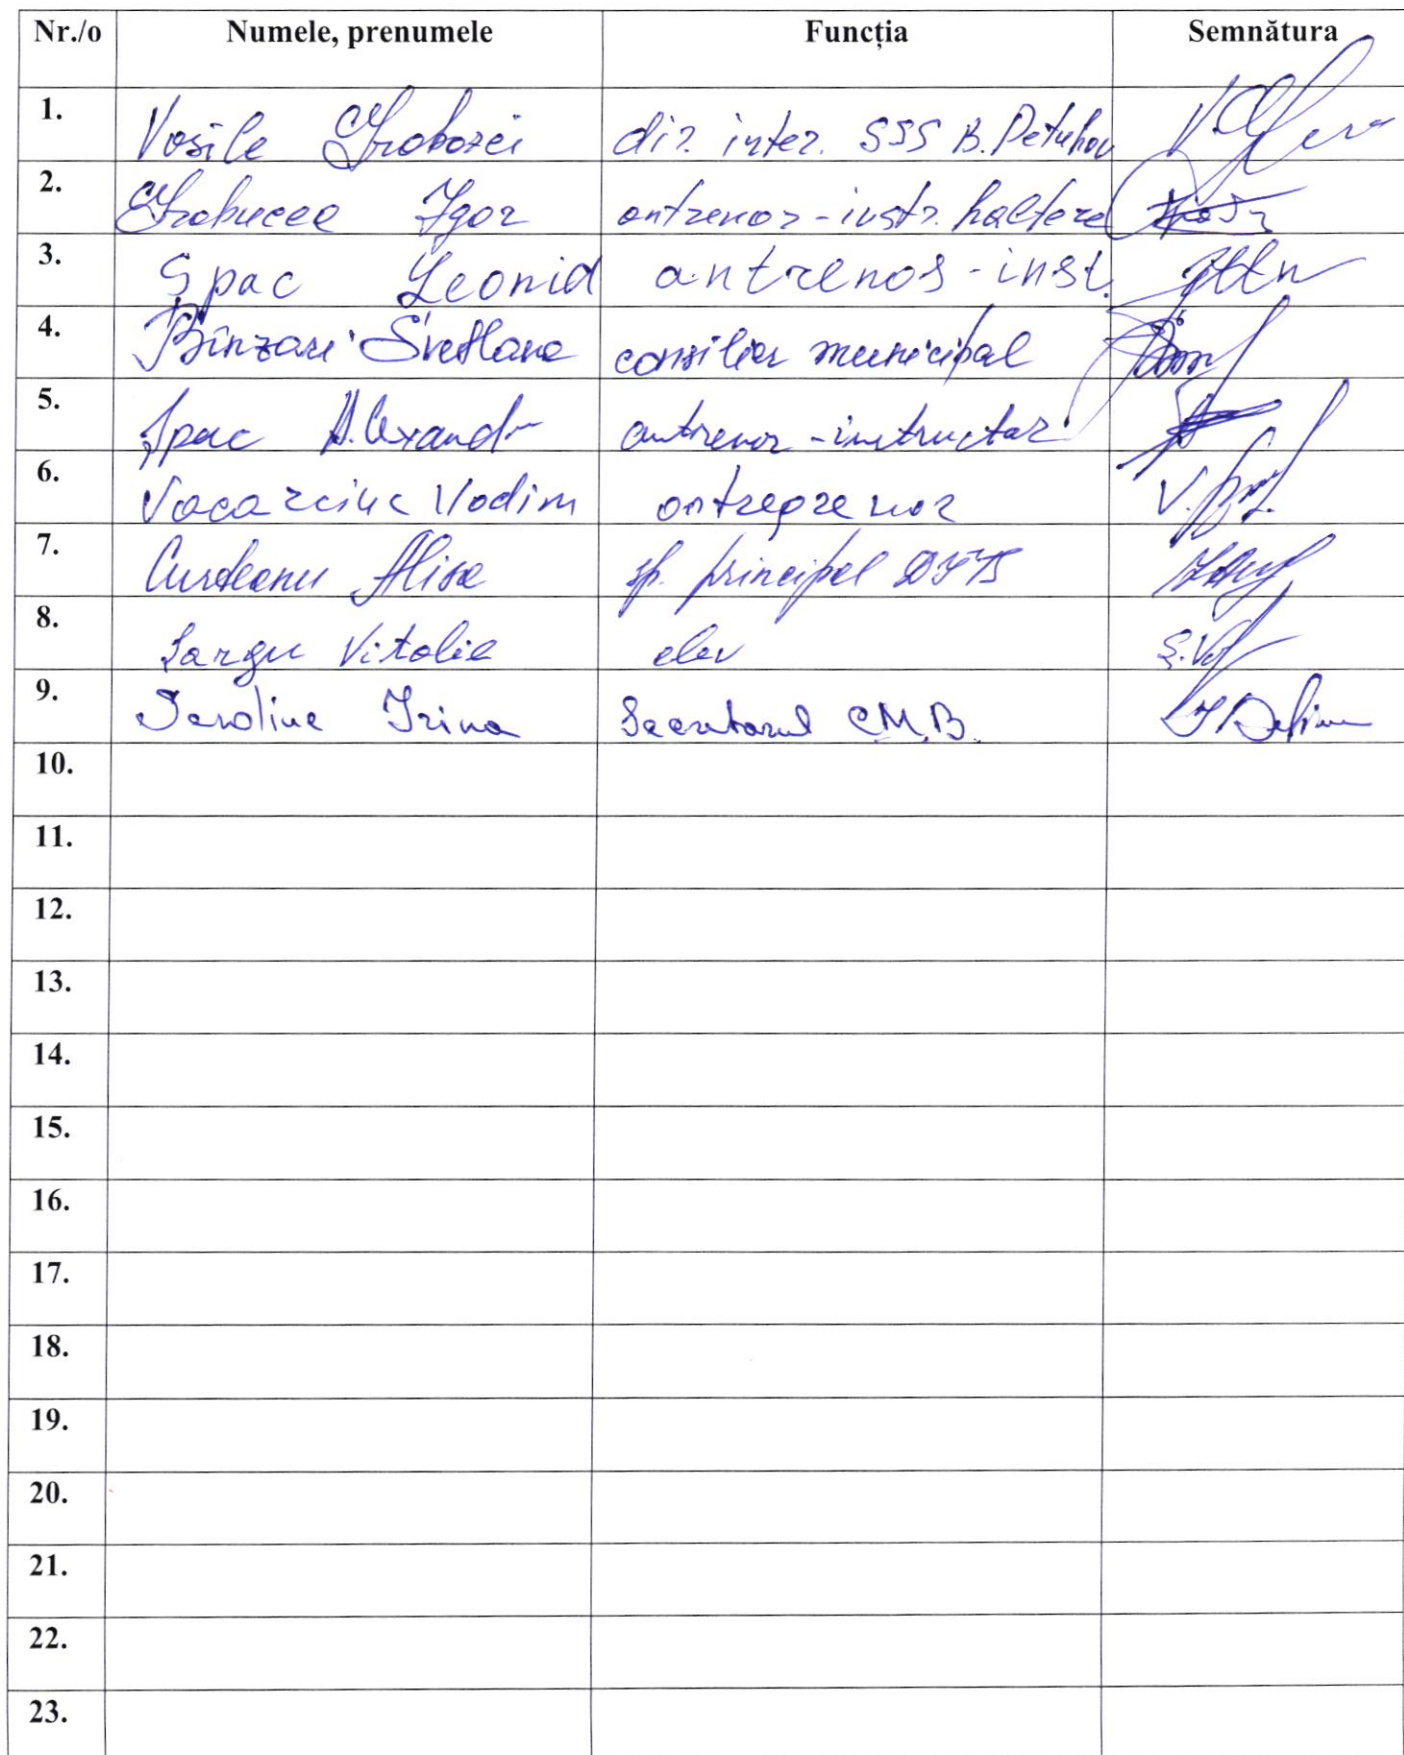 Nr./o Numele, prenumele Funcția Semnătura
1. Vasile Grabazei dir. inter. SSS B. Petuhov
2. Igor antrenor-instr. haltere
3. Spac Leonid antrenor-inst.
4. Bînzari Svetlana consilier municipal
5. Spac Alexandr antrenor-instructor
6. Vacarciuc Vadim antreprenor
7. Curdeanu Alisa sp. principal
8. Sargu Vitalie elev
9. Irina Secretarul C.M.B.
10.
11.
12.
13.
14.
15.
16.
17.
18.
19.
20.
21.
22.
23.